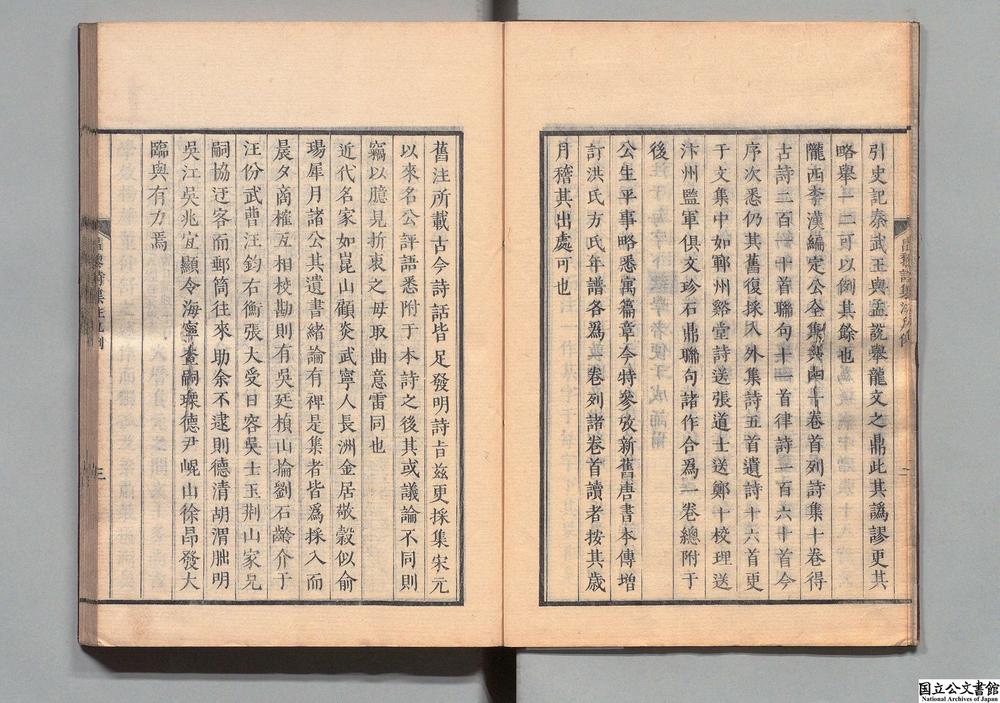 引史記秦武王與孟說舉龍文之鼎此其譌謬更其
略舉一二可以倒其餘也
隴西李漢編定公全集四十卷首列詩集十卷得
古詩二百一十首聯句十一首律詩一百六十首今
序次悉仍其舊復採入外集詩五首遺詩十六首更
于文集中如鄆州谿堂詩送張道士送鄭十校理送
汴州監軍俱文珍石鼎聯句諸作合爲一卷總附于
後
公生平事略悉寓篇章今特參攷新舊唐書本傳增
訂洪氏方氏年譜各爲卷列諸卷首讀者按其歲
月稽其出處可也
舊注所載古今詩話皆足發明詩旨兹更採集宋元
以來名公評語悉附于本詩之後其或議論不同則
竊以臆見折衷之毋取曲意雷同也
近代名家如崑山顧炎武寧人長洲金居敬穀似俞
瑒犀月諸公其遺書緒論有裨是集者皆爲採入而
晨夕商榷互相校勘則有吳廷楨山掄劉石齡介于
汪份武曹汪鈞右衡張大受日容吳士玉荆山家兄
嗣協迂客而郵筒往來助余不逮則德清胡渭朏明
吳江吳兆宜顯令海寧查嗣瑮德尹崐山徐昂發大
臨與有力焉
昌黎詩集注凡例
三
昌黎詩集注凡例
二
国立公文書館
National Archives of Japan